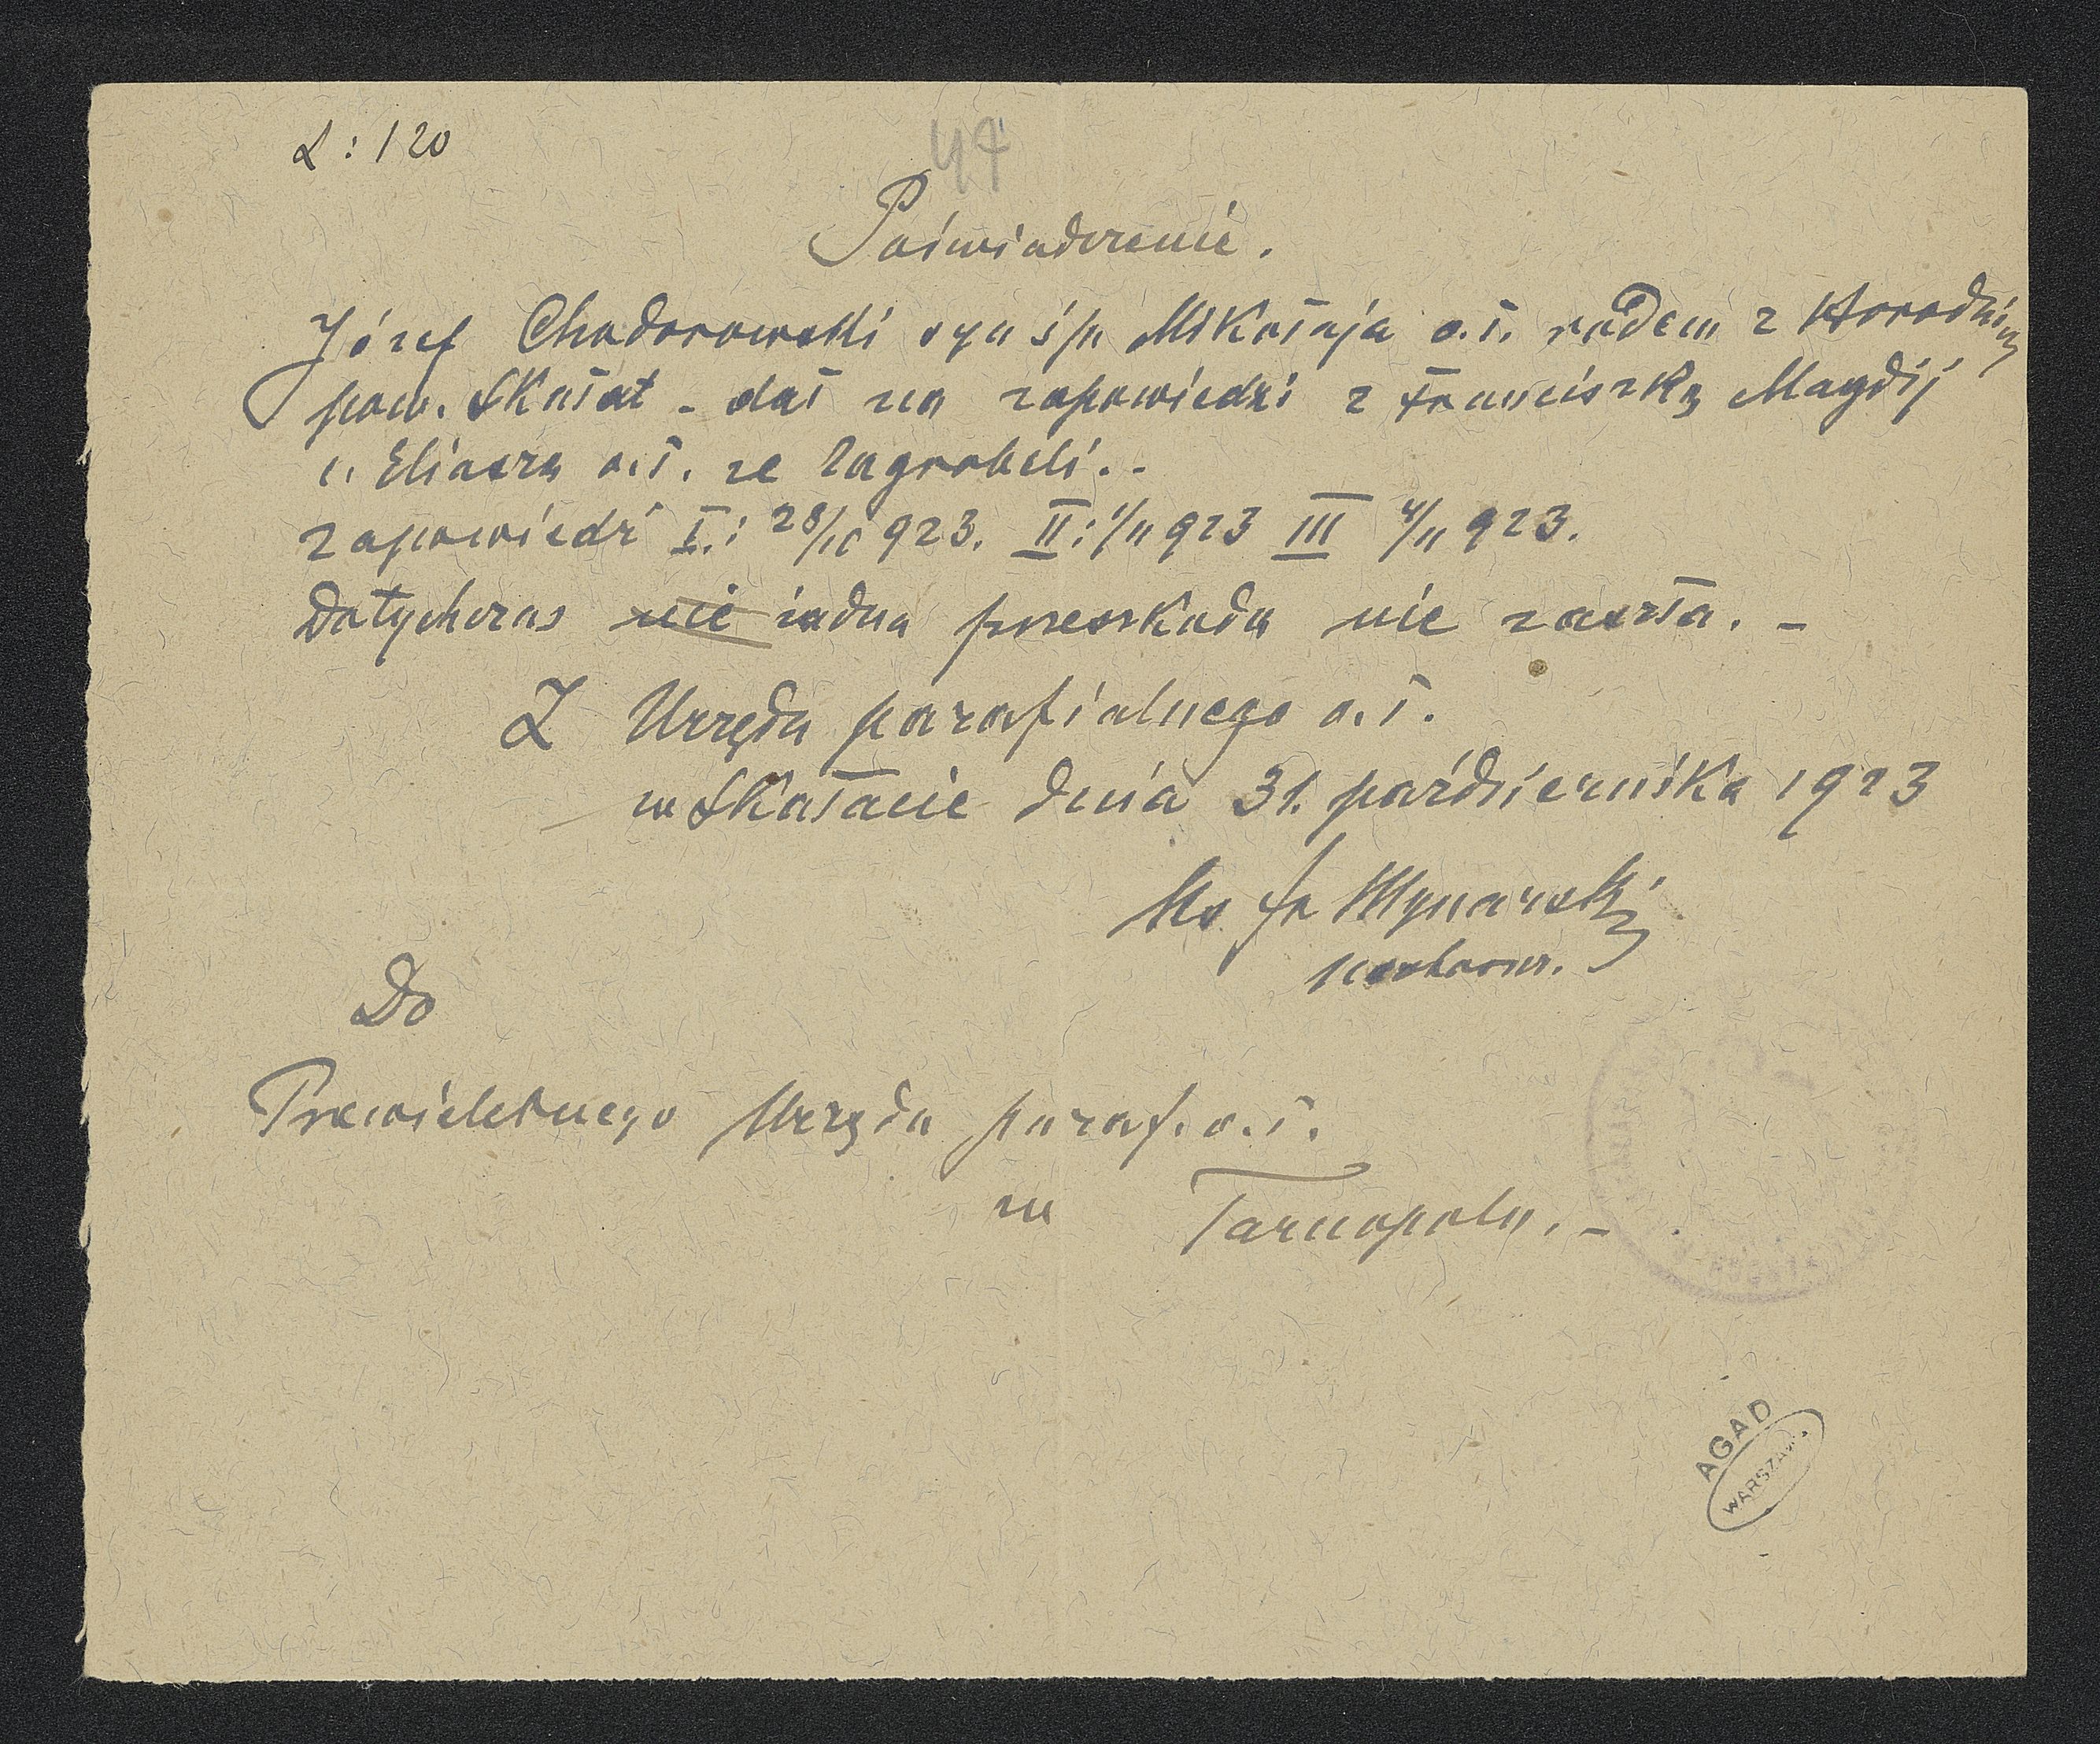 L: 120
47
Poświadczenie.
Józef Chodorowski syn śp. Mikołaja o. ł. rodem z Horodni
pow. Skałat - dał na zapowiedzi z Franciszką Magdij
c. Eliasza o. ł. ze Zagrobeli. -
zapowiedzi I.: 28/10 923. II: 1/11 923 III 4/11 923.
Dotychczas nie żadna przeszkoda nie zaszła. -
Z Urzędu parafialnego o. ł.
w Skałacie dnia 31. października 1923
Ks. Fr Młynarski
Do
Przewielebnego Urzędu paraf. o. ł.
w Tarnopolu. -
AGAD
WARSZAWA